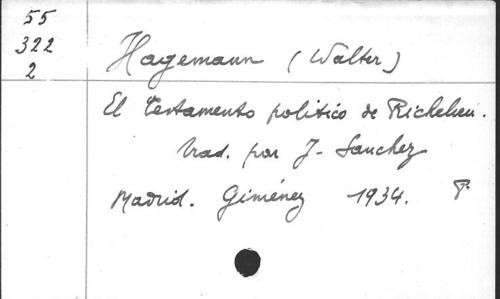 55
322
2
Hagemann (Walter)
El testamento politico de Richelieu.
trad. por J. Sanchez
Madrid. Giménez 1934. P